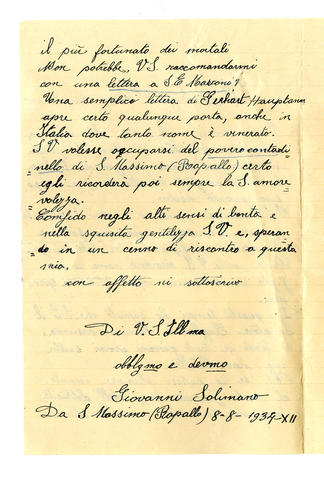 il più fortunato dei mortali
Non potrebbe, V.S. raccomandarmi
con una lettera a S.E Marconi?
Una semplice lettera di Gerhart Hauptann
apre certo qualunque porta, anche in
Italia dove tanto nome è venerato.
S.V. volesse occuparsi del povero contadi
nello di S. Massimo (Rapallo) certo
egli ricorderà poi sempre la S. amore
=volezza.
Confido negli alti sensi di bontà e
nella squisita gentilezza S.V. e, speran
do in un cenno di riscontro a questa
mia,
con affetto mi sottoscrivo
Di V.S. Ill ma
obblgmo e devmo
Giovanni Solimano
Da S Massimo (Rapallo) 8-8-1934-XII